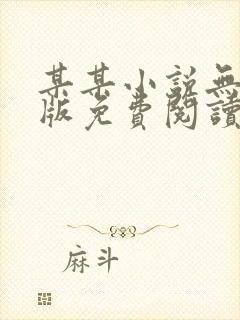 某某小说無
版免費閱讀
麻斗